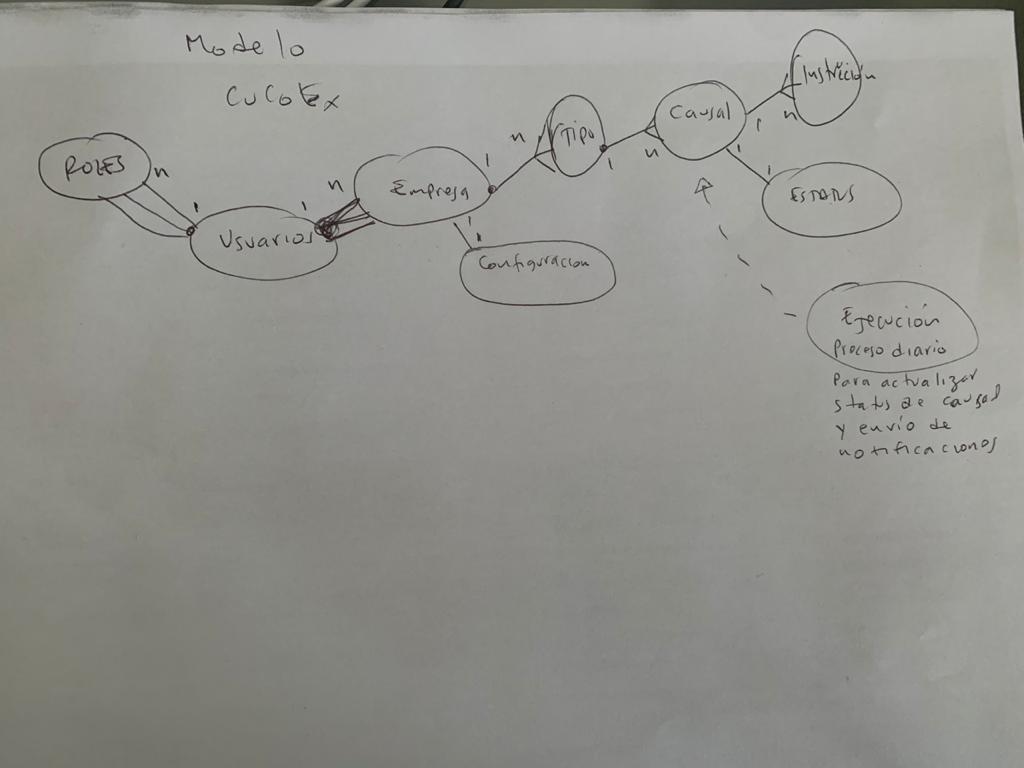 Modelo
CUCOTEX
ROLES
n
1
Usuarios
1
n
Empresa
1
1
1
Configuracion
n
Tipo
1
n
Causal
1
n
1
1
ESTATUS
Ejecución
Proceso diario
Para actualizar
status de causal
y envío de
notificaciones